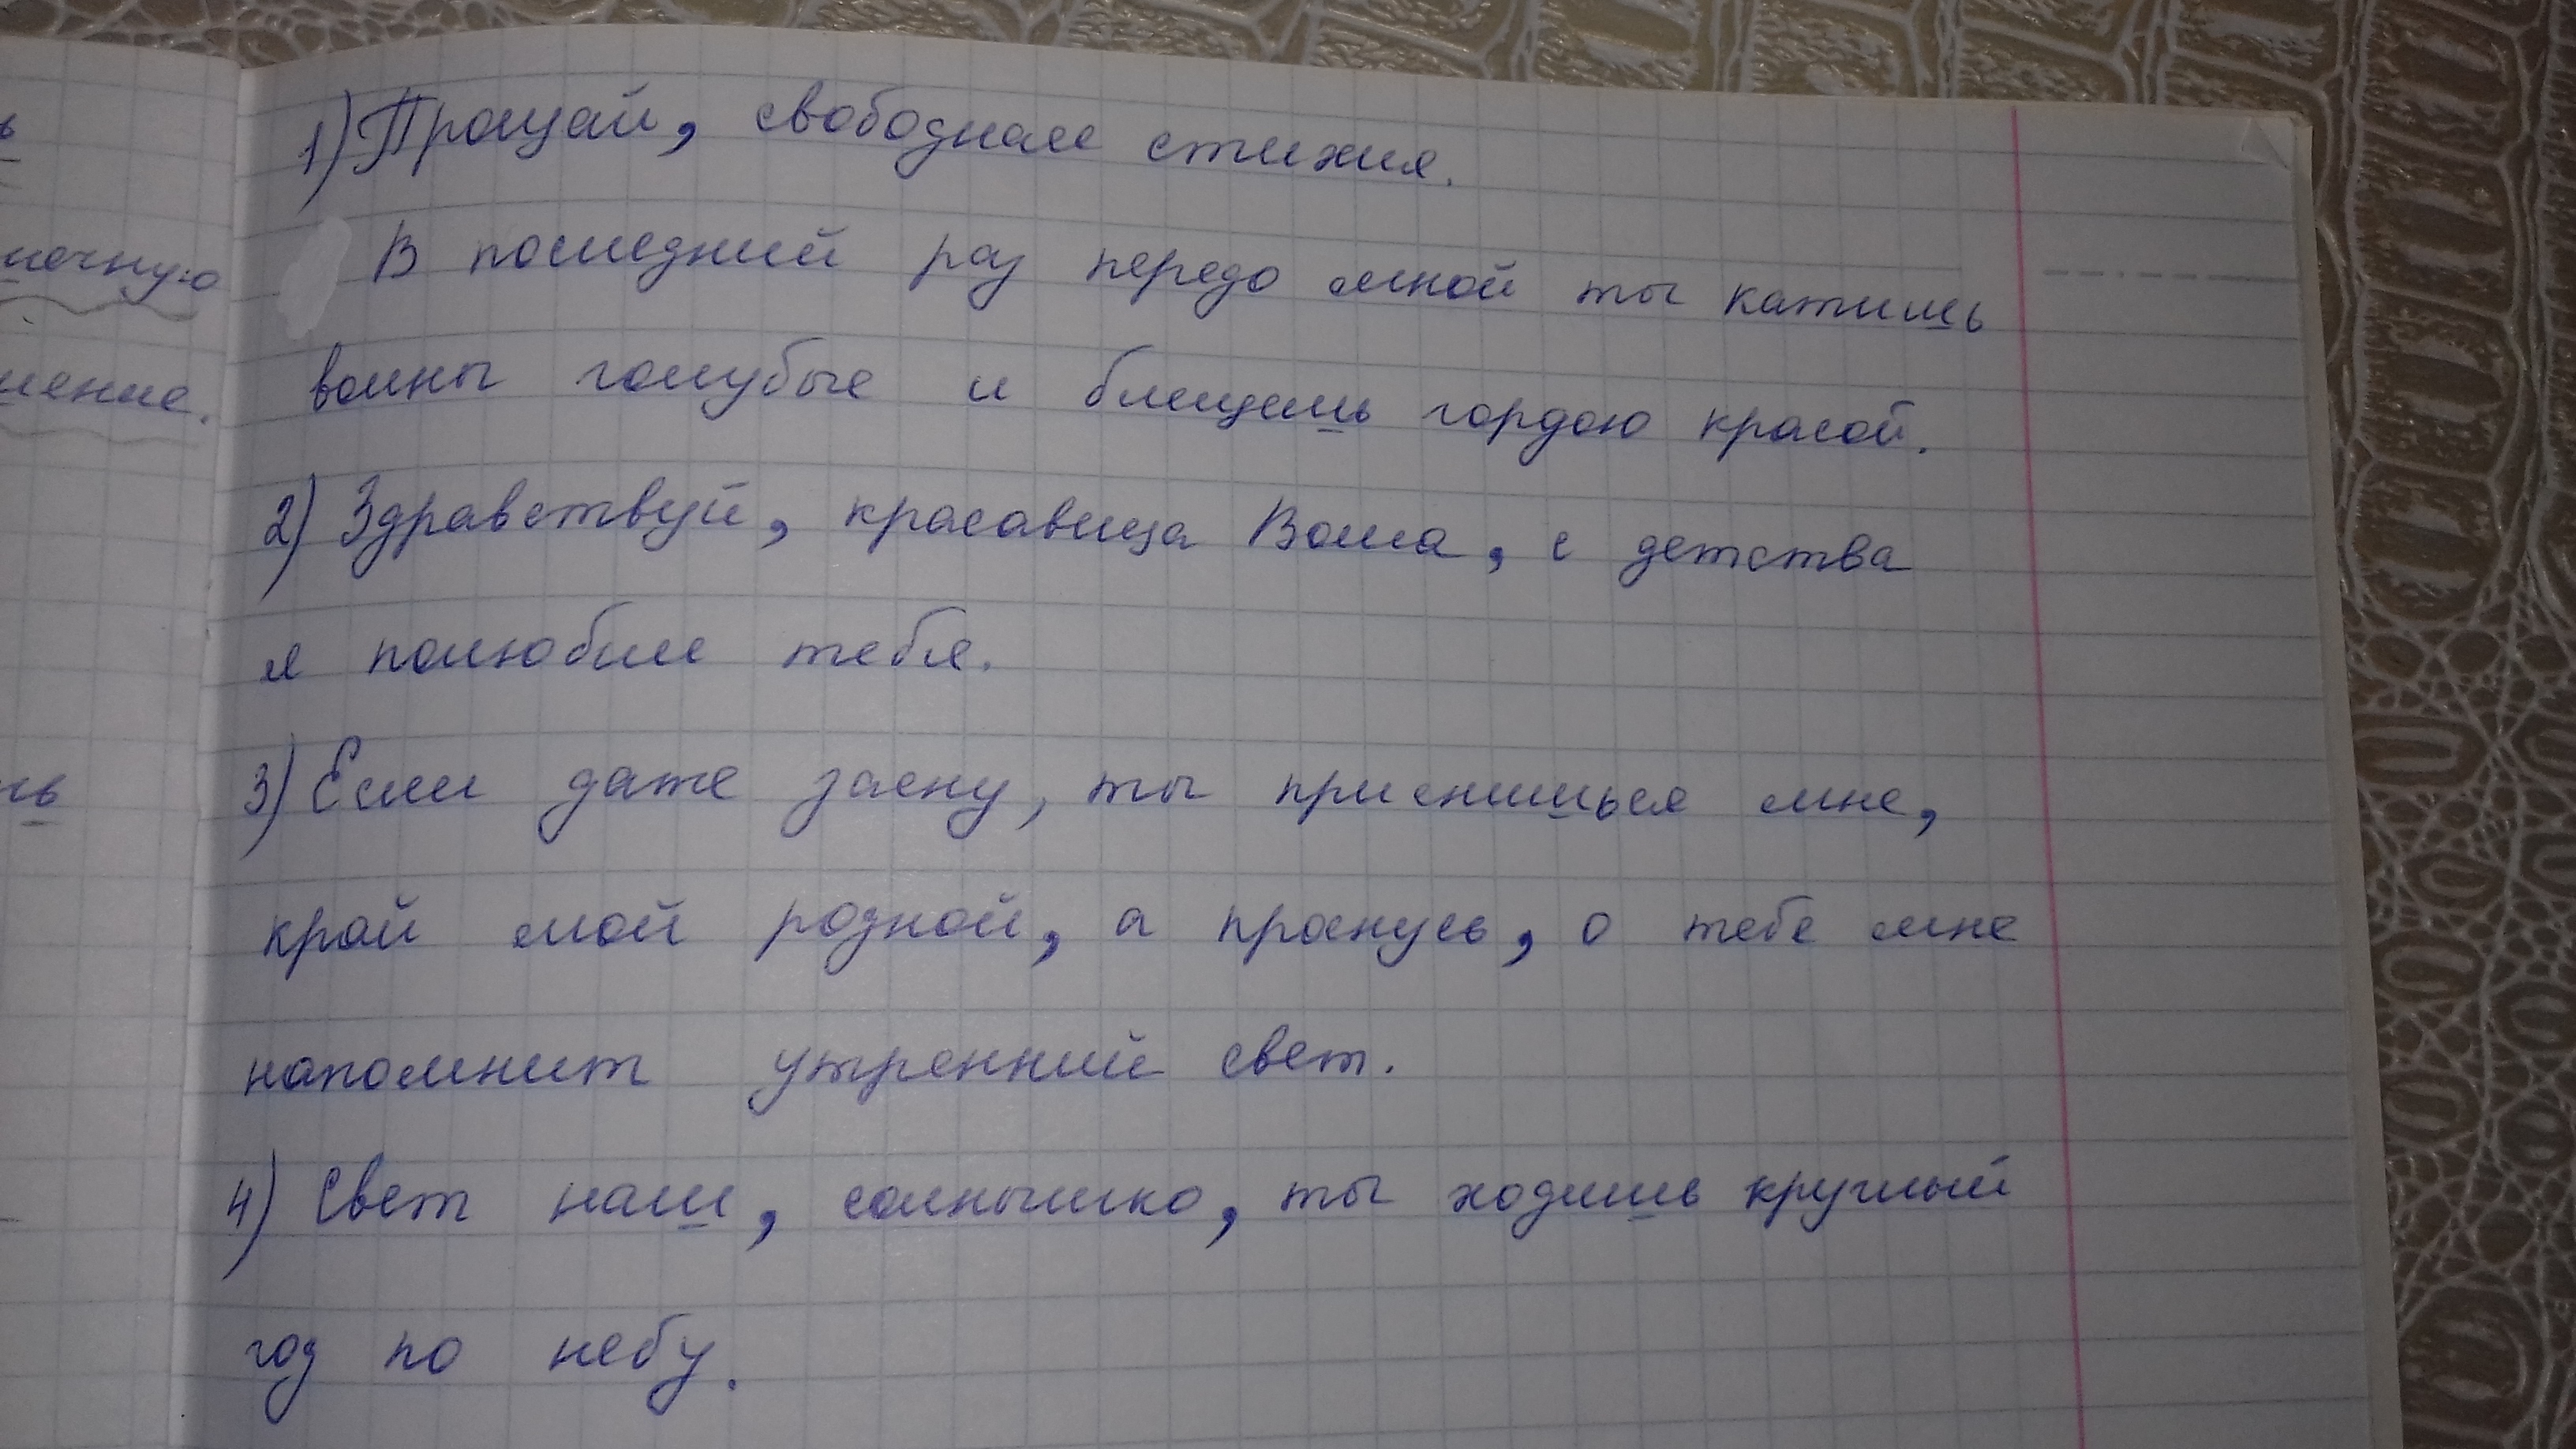 1) Прощай, свободная стихия.
В последний раз передо мной ты катишь
волны голубые и блещешь гордою красой.
2) Здравствуй, красавица Волга, с детства
я полюбил тебя.
3) Если даже засну, ты приснишься мне,
край мой родной, а проснусь, о тебе мне
напомнит утренний свет.
4) Свет наш, солнышко, ты ходишь круглый
год по небу.